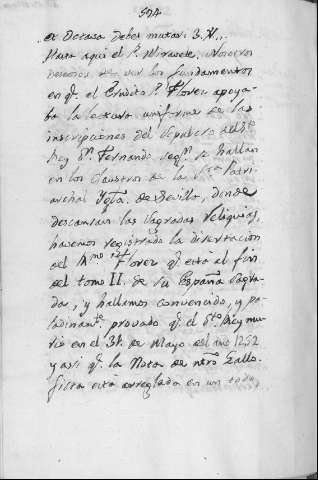 574
et Decasa debes mutari 3. N...
Hasta aqui el P. Miravete. Nosotros
deseosos de ver los fundamentos
en qe. el Erudito P. Florez apoya-
ba la lectura uniforme de las
inscripciones del Sepulcro del Sto.
Rey Dn. Fernando segn. se hallan
en los claustros de la Sta. Patri-
archal Ygla. de Sevilla, donde
descansan las sagradas Reliquias,
hacemos registrado la disertacion
del Rmo. Florez qe. esta al fin
del tomo II. de su España Sagra-
da, y hallamos convencido, y pa-
ladinamte. provado qe. el Sto. Rey mu-
rio en el 31. de Mayo del año 1252
y asi qe. la Nota de ntro. Gallo-
esta arreglada en un todo,